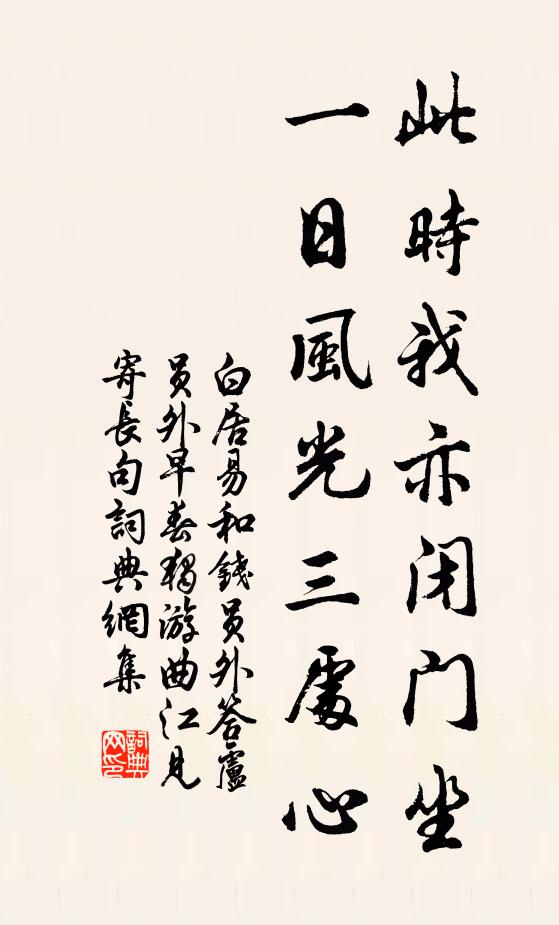 此時我亦閉門坐
一日風光三處心
白居易和錢員外答盧
員外早春獨游曲江見
寄長句詞典網集
詞典网印